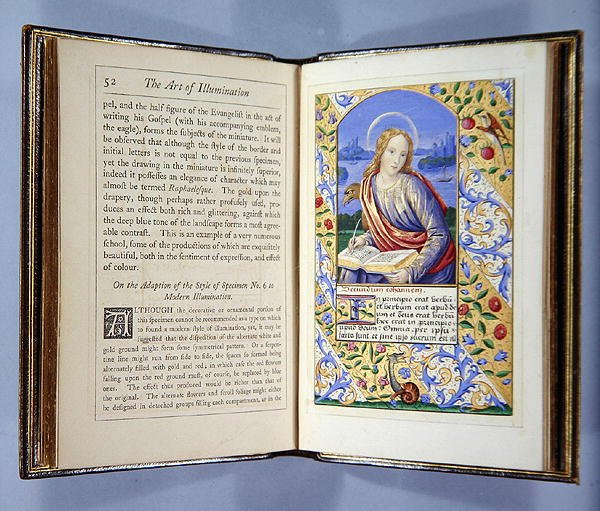 52 The Art of Illumination
pel, and the half figure of the Evangelist in the act of
writing his Gospel (with his accompanying emblem,
the eagle), forms the subjects of the miniature. It will
be observed that although the style of the border and
initial letters is not equal to the previous specimen,
yet the drawing in the miniature is infinitely superior,
indeed it possesses an elegance of character which may
almost be termed Raphaelesque. The gold upon the
drapery, though perhaps rather profusely used, pro-
duces an effect both rich and glittering, against which
the deep blue tone of the landscape forms a most agree-
able contrast. This is an example of a very numerous
school, some of the productions of which are exquisitely
beautiful, both in the sentiment of expression, and effect
of colour.
On the Adaption of the Style of Specimen No. 6 to
Modern Illumination.
ALTHOUGH the decorative or ornamental portion of
this specimen cannot be recommended as a type on which
to found a modern style of illumination, yet, it may be
suggested that the disposition of the alternate white and
gold ground might form some symmetrical pattern. Or a serpen-
tine line might run from side to side, the spaces so formed being
alternately filled with gold and red; in which case the red flowers
falling upon the red ground must, of course, be replaced by blue
ones. The effect thus produced would be richer than that of
the original. The alternate flowers and scroll foliage might either
be designed in detached groups filling each compartment, or in the
Secundum iohannem.
In principio erat verbū
et verbum erat apud de
um et deus erat verbū
hoc erat in principio
apud deum: Omnia per ipsū
facta sunt et sine ipso factum est nī